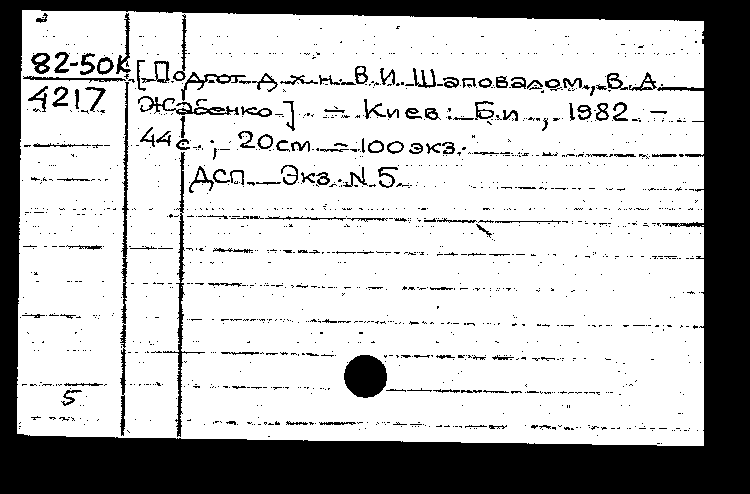 2
82-50К [Подгот. д. х. н. В.И. Шаповалом, В. А.
4217 Жабенко]. – Киев: Б.и., 1982. –
44 с.; 20 см. – 100 экз.
ДСП. Экз. N 5.
5